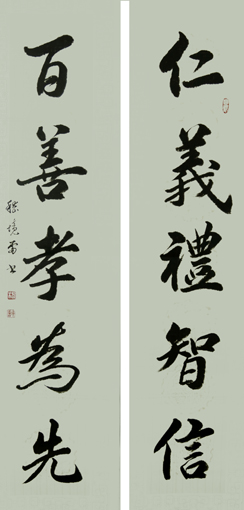 仁義禮智信
百善孝為先